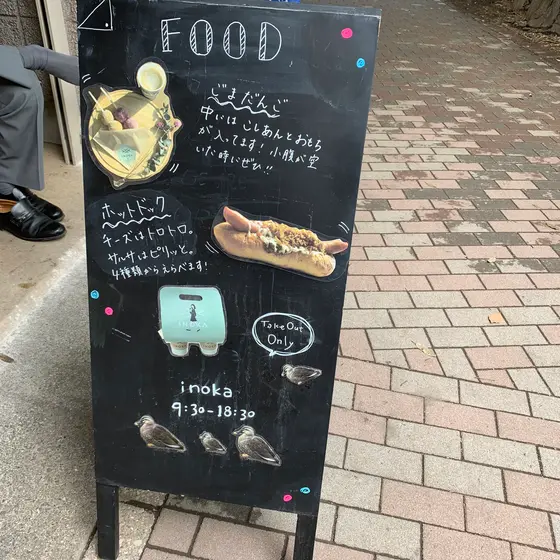 FOOD
ごまだんご
中には こしあんとおもち
が入ってます! 小腹が空
いた時にぜひ!!
ホットドック
チーズはトロトロ。
サルサはピリッと。
4種類からえらべます!
Take Out
Only
inoka
9:30-18:30